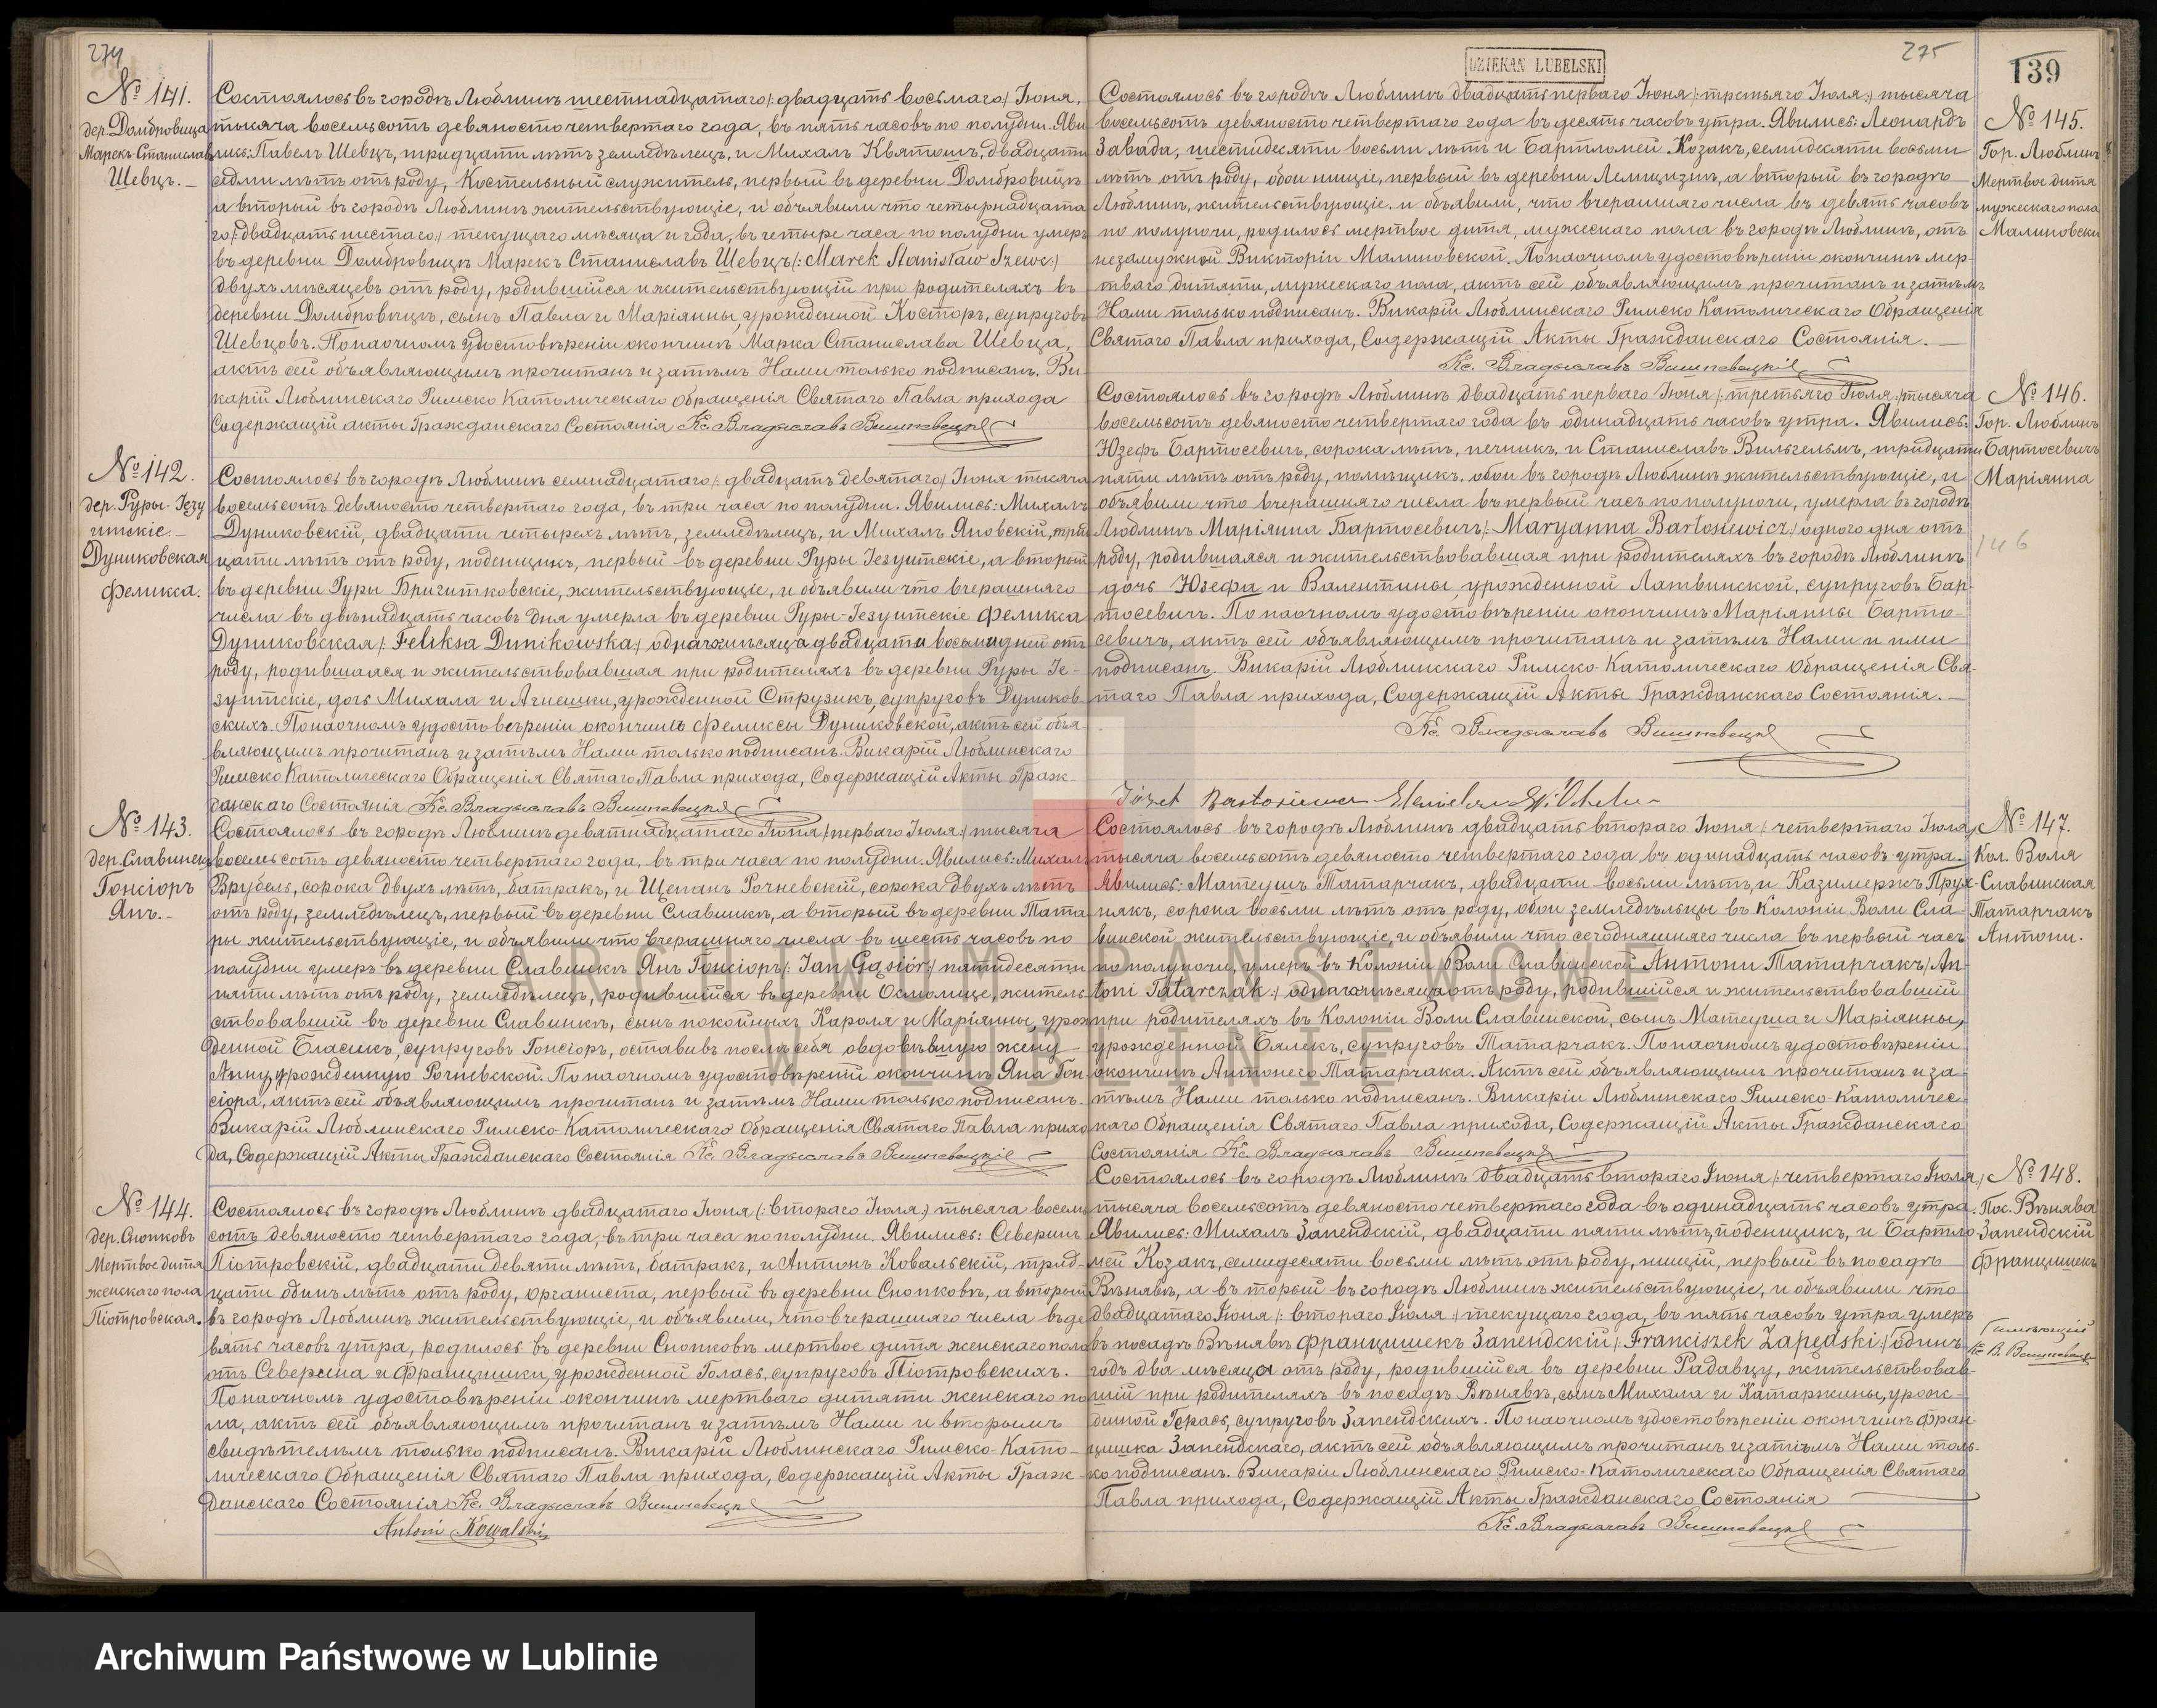 274
№ 141.
дер. Домбровица
Марекъ Станиславъ
Шевцъ. —
Состоялось въ городѣ Люблинѣ шестнадцатаго /: двадцать восьмаго :/ Іюня,
тысяча восемьсотъ девяносто четвертаго года, въ пять часовъ по полудни. Яви
лись: Павелъ Шевцъ, тридцати лѣтъ земледѣлецъ, и Михалъ Квятошъ, двадцати
седми лѣтъ отъ роду, Костельный служитель, первый въ деревни Домбровицѣ
а вторый въ городѣ Люблинѣ жительствующіе, и объявили что четырнадцата
го /: двадцать шестаго :/ текущаго мѣсяца и года, въ четыре часа по полудни умеръ
въ деревни Домбровицѣ Марекъ Станиславъ Шевцъ /: Marek Stanisław Szewc :/
двухъ мѣсяцевъ отъ роду, родившійся и жительствующій при родителяхъ въ
деревни Домбровицѣ, сынъ Павла и Маріянны, урожденной Косторъ, супруговъ
Шевцовъ. По наочномъ удостовѣреніи окончинѣ Марка Станислава Шевца,
актъ сей объявляющимъ прочитанъ и затѣмъ Нами только подписанъ. Ви
карій Люблинскаго Римско Католическаго Обращенія Святаго Павла прихода
Содержащій акты Гражданскаго Состоянія Кс. Владыславъ Вишневецкій
№ 142.
дер. Руры-Іезу
итскіе. —
Дуниковская
Феликса.
Состоялось въ городѣ Люблинѣ семнадцатаго /: двадцать девятаго :/ Іюня тысяча
восемьсотъ девяносто четвертаго года, въ три часа по полудни. Явились: Михалъ
Дуниковскій, двадцати четырехъ лѣтъ, земледѣлецъ, и Михалъ Яновскій, трид
цати лѣтъ отъ роду, поденщикъ, первый въ деревни Руры Іезуитскіе, а вторый
въ деревни Руры Бригитковскіе, жительствующіе, и объявили что вчерашняго
числа въ двѣнадцать часовъ дня умерла въ деревни Руры-Іезуитскіе Феликса
Дуниковская /: Feliksa Dunikowska :/ одного мѣсяца двадцати восьми дней отъ
роду, родившаяся и жительствовавшая при родителяхъ въ деревни Руры Іе-
зуитскіе, дочь Михала и Агнешки, урожденной Струзикъ, супруговъ Дуников-
скихъ. По наочномъ удостовѣреніи окончинѣ Феликсы Дуниковской, актъ сей объя-
вляющимъ прочитанъ и затѣмъ Нами только подписанъ. Викарій Люблинскаго
Римско Католическаго Обращенія Святаго Павла прихода, Содержащій Акты Граж-
данскаго Состоянія Кс. Владыславъ Вишневецкій
№ 143.
дер. Славинекъ
Гонсіоръ
Янъ. —
Состоялось въ городѣ Люблинѣ девятнадцатаго Іюня /: перваго Іюля :/ тысяча
восемьсотъ девяносто четвертаго года, въ три часа по полудни. Явились: Михалъ
Врубель, сорока двухъ лѣтъ, батракъ, и Щепанъ Рочневскій, сорока двухъ лѣтъ
отъ роду, земледѣлецъ, первый въ деревни Славинкѣ, а вторый въ деревни Тата
ры жительствующіе, и объявили что вчерашняго числа въ шесть часовъ по
полудни умеръ въ деревни Славинкѣ Янъ Гонсіоръ /: Jan Gąsiór :/ пятидесяти
пяти лѣтъ отъ роду, земледѣлецъ, родившійся въ деревни Осмолице, житель
ствовавшій въ деревни Славинкѣ, сынъ покойныхъ Кароля и Маріянны, урож
денной Бласикъ, супруговъ Гонсіоръ, оставивъ послѣ себя овдовѣвшую жену
Анну, урожденную Рочневской. По наочномъ удостовѣреніи окончинѣ Яна Гон
сіора, актъ сей объявляющимъ прочитанъ и затѣмъ Нами только подписанъ.
Викарій Люблинскаго Римско-Католическаго Обращенія Святаго Павла прихо
да, Содержащій Акты Гражданскаго Состоянія Кс. Владыславъ Вишневецкій
№ 144.
дер. Снопковъ
Мертвое дитя
женскаго пола
Піотровская.
Состоялось въ городѣ Люблинѣ двадцатаго Іюня /: втораго Іюля :/ тысяча восемь
сотъ девяносто четвертаго года, въ три часа по полудни. Явились: Северинъ
Піотровскій, двадцати девяти лѣтъ, батракъ, и Антонъ Ковальскій, трид-
цати одинъ лѣтъ отъ роду, органиста, первый въ деревни Снопковѣ, а вторый
въ городѣ Люблинѣ жительствующіе, и объявили, что вчерашняго числа въ де
вять часовъ утра, родилось въ деревни Снопковѣ мертвое дитя женскаго пола
отъ Северина и Францишки, урожденной Голась, супруговъ Піотровскихъ.
По наочномъ удостовѣреніи окончинѣ мертваго дитяти женскаго по
ла, актъ сей объявляющимъ прочитанъ и затѣмъ Нами и вторымъ
свидѣтелемъ только подписанъ. Викарій Люблинскаго Римско-Като-
лическаго Обращенія Святаго Павла прихода, Содержащій Акты Граж-
данскаго Состоянія Кс. Владыславъ Вишневецкій
Antoni Kowalski
DZIEKAN LUBELSKI
275
139
№ 145.
Гор. Люблинъ
Мертвое дитя
мужескаго пола
Малиновски
Состоялось въ городѣ Люблинѣ двадцать перваго Іюня /: третьяго Іюля :/ тысяча
восемьсотъ девяносто четвертаго года въ десять часовъ утра. Явились: Леонардъ
Завада, шестидесяти восьми лѣтъ и Бартломей Козакъ, семидесяти восьми
лѣтъ отъ роду, обои нищіе, первый въ деревни Лемщизнѣ, а вторый въ городѣ
Люблинѣ, жительствующіе. и объявили, что вчерашняго числа въ девять часовъ
по полуночи, родилось мертвое дитя, мужескаго пола въ городѣ Люблинѣ, отъ
незамужной Викторіи Малиновской. По наочномъ удостовѣреніи окончинѣ мер-
тваго дитяти, мужескаго пола, актъ сей объявляющимъ прочитанъ и затѣмъ
Нами только подписанъ. Викарій Люблинскаго Римско Католическаго Обращенія
Святаго Павла прихода, Содержащій Акты Гражданскаго Состоянія. —
Кс. Владыславъ Вишневецкій
№ 146.
Гор. Люблинъ
Бартосевичъ
Маріянна
146
Состоялось въ городѣ Люблинѣ двадцать перваго Іюня /: третьяго Іюля :/ тысяча
восемьсотъ девяносто четвертаго года въ одинадцать часовъ утра. Явились:
Юзефъ Бартосевичъ, сорока лѣтъ, печникъ, и Станиславъ Вильгельмъ, тридцати
пяти лѣтъ отъ роду, помѣщикъ, обои въ городѣ Люблинѣ жительствующіе, и
объявили что вчерашняго числа въ первый часъ по полуночи, умерла въ городѣ
Люблинѣ Маріянна Бартосевичъ /: Maryanna Bartosiewicz :/ одного дня отъ
роду, родившаяся и жительствовавшая при родителяхъ въ городѣ Люблинѣ
дочь Юзефа и Валентины, урожденной Латвинской, супруговъ Бар-
тосевичъ. По наочномъ удостовѣреніи окончинѣ Маріянны Барто-
севичъ, актъ сей объявляющимъ прочитанъ и затѣмъ Нами и ими
подписанъ. Викарій Люблинскаго Римско-Католическаго Обращенія Свя-
таго Павла прихода, Содержащій Акты Гражданскаго Состоянія. —
Кс. Владыславъ Вишневецкій
Józef Bartosiewicz
№ 147.
Кол. Воля
Славинская
Татарчакъ
Антони.
Состоялось въ городѣ Люблинѣ двадцать втораго Іюня /: четвертаго Іюля :/
тысяча восемьсотъ девяносто четвертаго года въ одинадцать часовъ утра.
Явились: Матеушъ Татарчакъ, двадцати восьми лѣтъ и Казимержъ Прух-
някъ, сорока восьми лѣтъ отъ роду, обои земледѣльцы въ Колоніи Воли Сла-
винской жительствующіе, и объявили что сегодняшняго числа въ первый часъ
по полуночи, умеръ въ Колоніи Воли Славинской Антони Татарчакъ /: An-
toni Tatarczak :/ одного мѣсяца отъ роду, родившійся и жительствовавшій
при родителяхъ въ Колоніи Воли Славинской, сынъ Матеуша и Маріянны,
урожденной Бялекъ, супруговъ Татарчакъ. По наочномъ удостовѣреніи
окончинѣ Антонего Татарчака. Актъ сей объявляющимъ прочитанъ и за
тѣмъ Нами только подписанъ. Викарій Люблинскаго Римско-Католичес
каго Обращенія Святаго Павла прихода, Содержащій Акты Гражданскаго
Состоянія Кс. Владыславъ Вишневецкій
№ 148.
Пос. Вѣнява
Запендскій
Францишекъ
Кс. В. Вишневецкій
Состоялось въ городѣ Люблинѣ двадцать втораго Іюня /: четвертаго Іюля :/
тысяча восемьсотъ девяносто четвертаго года въ одинадцать часовъ утра.
Явились: Михалъ Запендскій, двадцати пяти лѣтъ, поденщикъ, и Бартло
мей Козакъ, семидесяти восьми лѣтъ отъ роду, нищій, первый въ посадѣ
Вѣнявѣ, а вторый въ городѣ Люблинѣ жительствующіе, и объявили что
двадцатаго Іюня /: втораго Іюля :/ текущаго года, въ пять часовъ утра умеръ
въ посадѣ Вѣнявѣ Францишекъ Запендскій /: Franciszek Zapędski :/ одинъ
годъ два мѣсяца отъ роду, родившійся въ деревни Радавцу, жительствовав-
шій при родителяхъ въ посадѣ Вѣнявѣ, сынъ Михала и Катаржины, урож-
дѣной Герась, супруговъ Запендскихъ. По наочномъ удостовѣреніи окончинѣ Фран-
цишка Запендскаго, актъ сей объявляющимъ прочитанъ и затѣмъ Нами толь-
ко подписанъ. Викарій Люблинскаго Римско-Католическаго Обращенія Святаго
Павла прихода, Содержащій Акты Гражданскаго Состоянія
Кс. Владыславъ Вишневецкій
ARCHIWUM PAŃSTWOWE
W LUBLINIE
Archiwum Państwowe w Lublinie